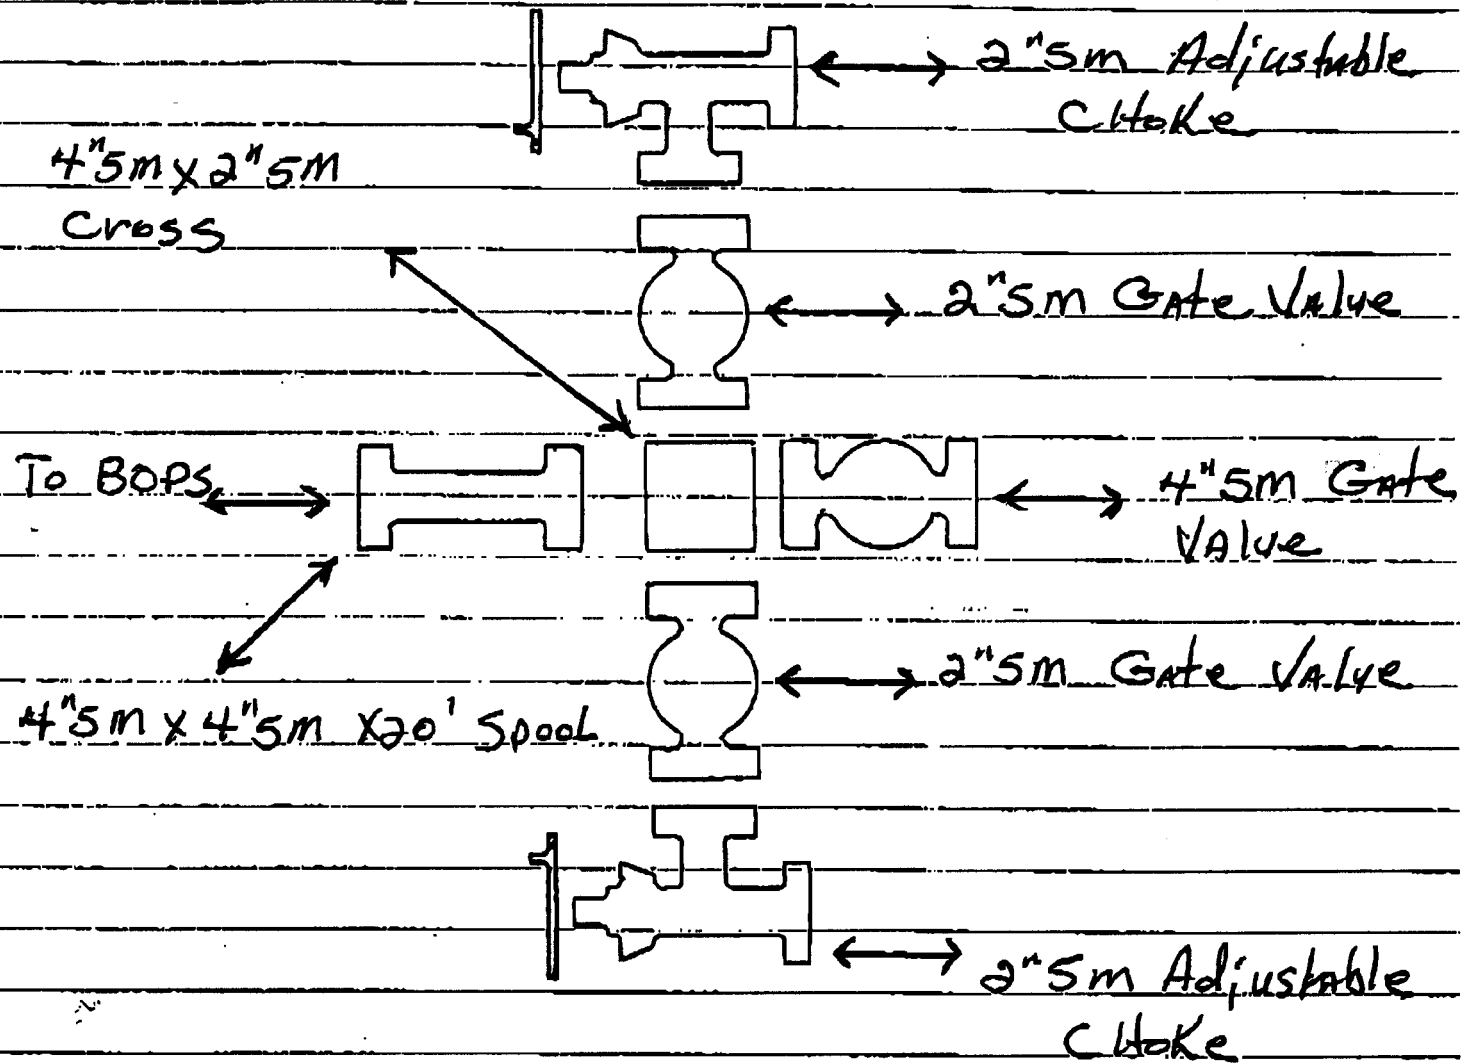 2"5m Adjustable
CHoKe
4"5m x 2"5M
Cross
2"5m GAte VAlve
To BOPS
4"5m GAte
VAlve
2"5m GAte VAlve
4"5m x 4"5m x20' SpooL
2"5m AdjustAble
CHoKe